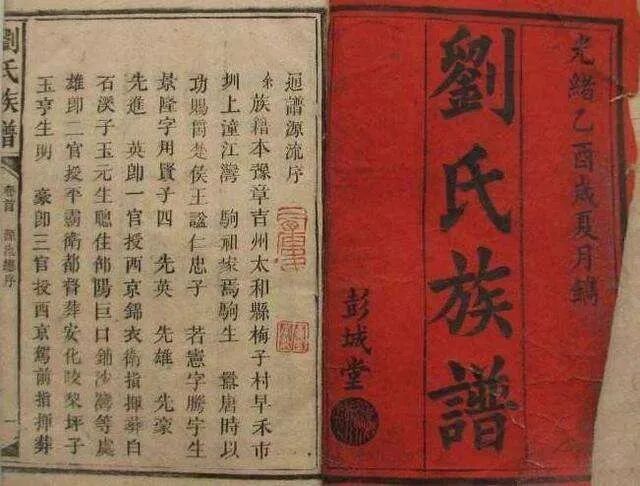 光緒乙酉歲夏月鐫
劉氏族譜
彭城堂
迴譜源流序
余族籍本豫章吉州太和縣梅子村早禾市
圳上潼江灣 駒祖家焉駒生 翯唐時以
功賜爵楚侯王諡仁忠子 若憲字騰宇生
景隆字用賢子四 先英 先雄 先豪
先進 英郎一官授西京錦衣衛指揮葬白
石溪子玉元生聰住邵陽巨口鋪沙灣等處
雄郎二官授平霸衛都督葬安化峧梨坪子
玉亨生明 豪郎三官授西京駕前指揮葬
劉氏族譜
卷首
源流總序
一